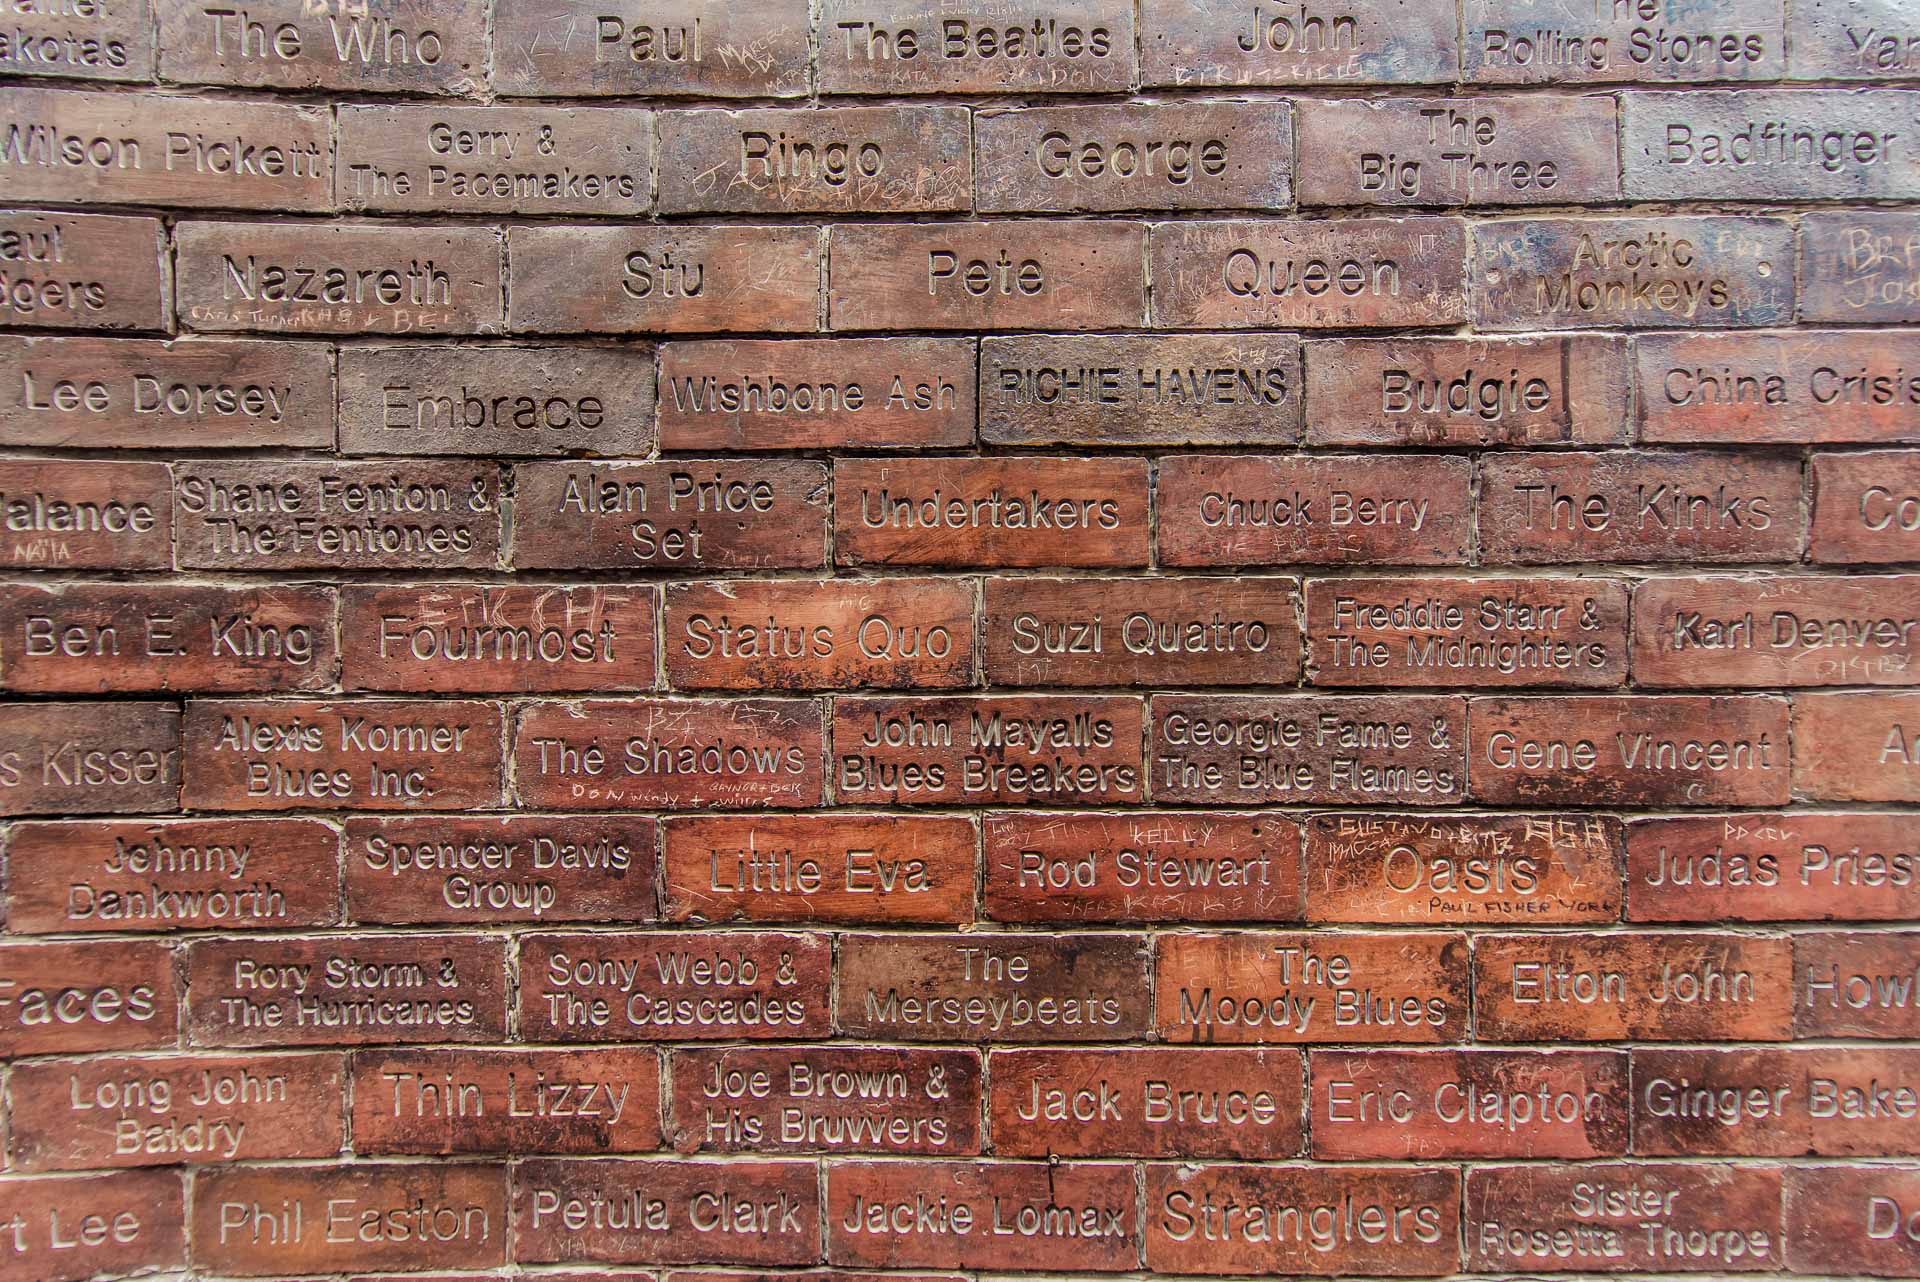 akotas
The Who
Paul
The Beatles
John
The
Rolling Stones
Yar
Wilson Pickett
Gerry &
The Pacemakers
Ringo
George
The
Big Three
Badfinger
aul
dgers
Nazareth
Chris Turner
Stu
Pete
Queen
Arctic
Monkeys
Lee Dorsey
Embrace
Wishbone Ash
RICHIE HAVENS
Budgie
China Crisis
alance
Shane Fenton &
The Fentones
Alan Price
Set
Undertakers
Chuck Berry
The Kinks
Co
Ben E. King
Fourmost
Status Quo
Suzi Quatro
Freddie Starr &
The Midnighters
Karl Denver
s Kisser
Alexis Korner
Blues Inc.
The Shadows
John Mayalls
Blues Breakers
Georgie Fame &
The Blue Flames
Gene Vincent
Johnny
Dankworth
Spencer Davis
Group
Little Eva
KELLY
Rod Stewart
Oasis
PAUL FISHER YORK
Judas Pries
Faces
Rory Storm &
The Hurricanes
Sony Webb &
The Cascades
The
Merseybeats
The
Moody Blues
Elton John
Howl
Long John
Baldry
Thin Lizzy
Joe Brown &
His Bruvvers
Jack Bruce
Eric Clapton
Ginger Bake
rt Lee
Phil Easton
Petula Clark
Jackie Lomax
Stranglers
Sister
Rosetta Thorpe